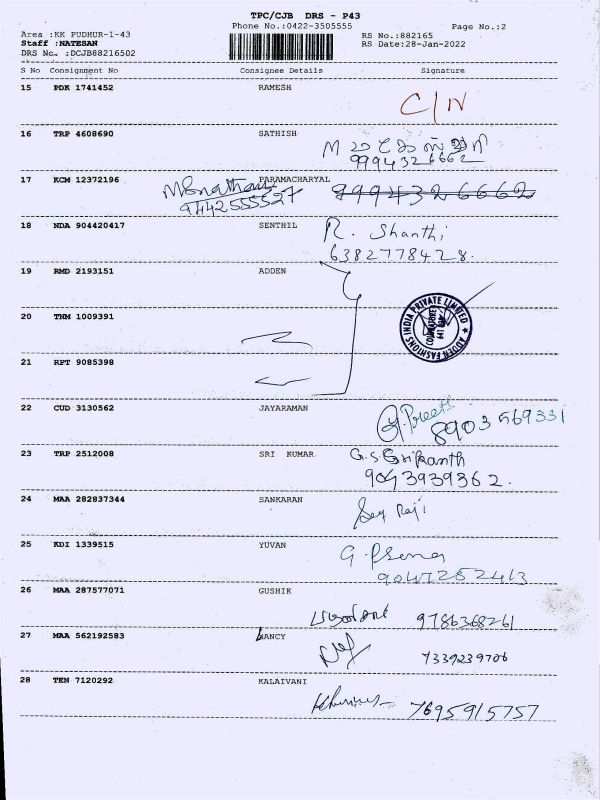 TPC/CJB DRS - P43
Phone No.:0422-3505555
Page No.:2
Area :KK PUDHUR-1-43
RS No.:882165
Staff :NATESAN
RS Date:28-Jan-2022
DRS No. :DCJB88216502
S No Consignment No Consignee Details Signature
15 PDK 1741452 RAMESH C/N
16 TRP 4608690 SATHISH
9994326662
17 KCM 12372196 PARAMACHARYAL 9994326662
9442555527
18 NDA 904420417 SENTHIL R. Shanthi
6382778428.
19 RMD 2193151 ADDEN
ADDEN FASHIONS INDIA PRIVATE LIMITED
20 TNM 1009391
21 RPT 9085398
22 CUD 3130562 JAYARAMAN
8903569331
23 TRP 2512008 SRI KUMAR G.S Srikanth
9043939362.
24 MAA 282837344 SANKARAN
25 KDI 1339515 YUVAN
9047252413
26 MAA 287577071 GUSHIK
9786368261
27 MAA 562192583 NANCY
7339239706
28 TEN 7120292 KALAIVANI
7695915757